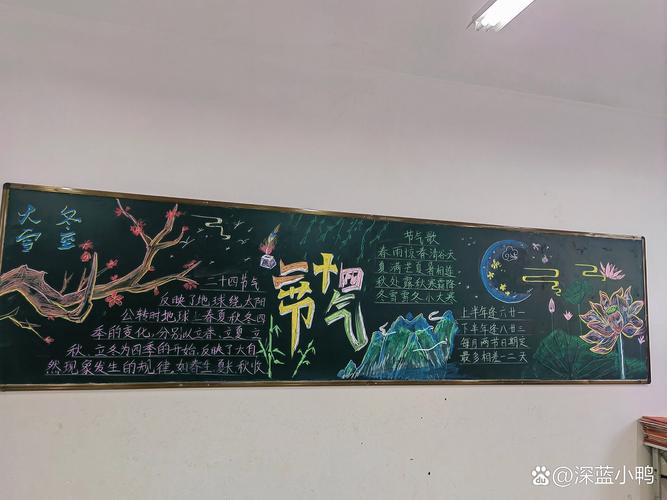 大雪
冬至
二十四节气
反映了地球绕太阳
公转时地球上春夏秋冬四
季的变化,分别以立春、立夏、立
秋、立冬为四季的开始,反映了大自
然现象发生的规律,如春生夏长秋收
二十四
节气
节气歌
春雨惊春清谷天
夏满芒夏暑相连
秋处露秋寒霜降
冬雪雪冬小大寒
上半年逢六廿一
下半年逢八廿三
每月两节日期定
最多相差一二天
@深蓝小鸭